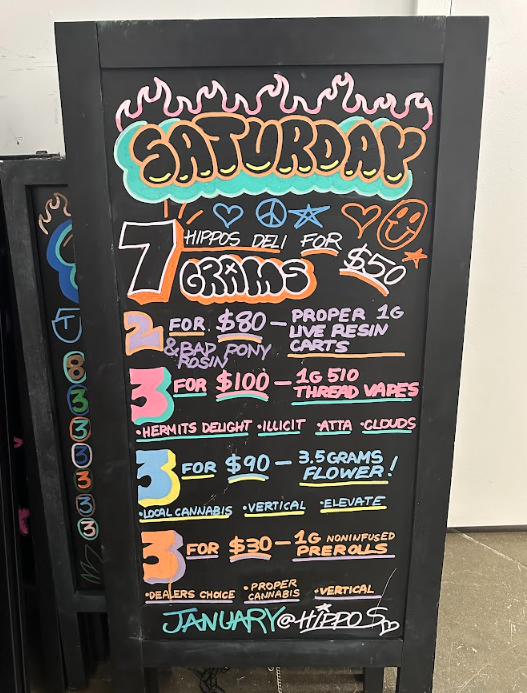 SATURDAY
7 HIPPOS DELI FOR $50
GRAMS
2 FOR $80 - PROPER 1G
LIVE RESIN
CARTS
& BAD PONY
ROSIN
3 FOR $100 - 1G 510
THREAD VAPES
•HERMITS DELIGHT •ILLICIT •ATTA •CLOUDS
3 FOR $90 - 3.5GRAMS
FLOWER!
•LOCAL CANNABIS •VERTICAL •ELEVATE
3 FOR $30 - 1G NONINFUSED
PREROLLS
•DEALERS CHOICE •PROPER CANNABIS •VERTICAL
JANUARY @HIPPOS
T
8
3
3
3
3
3
3